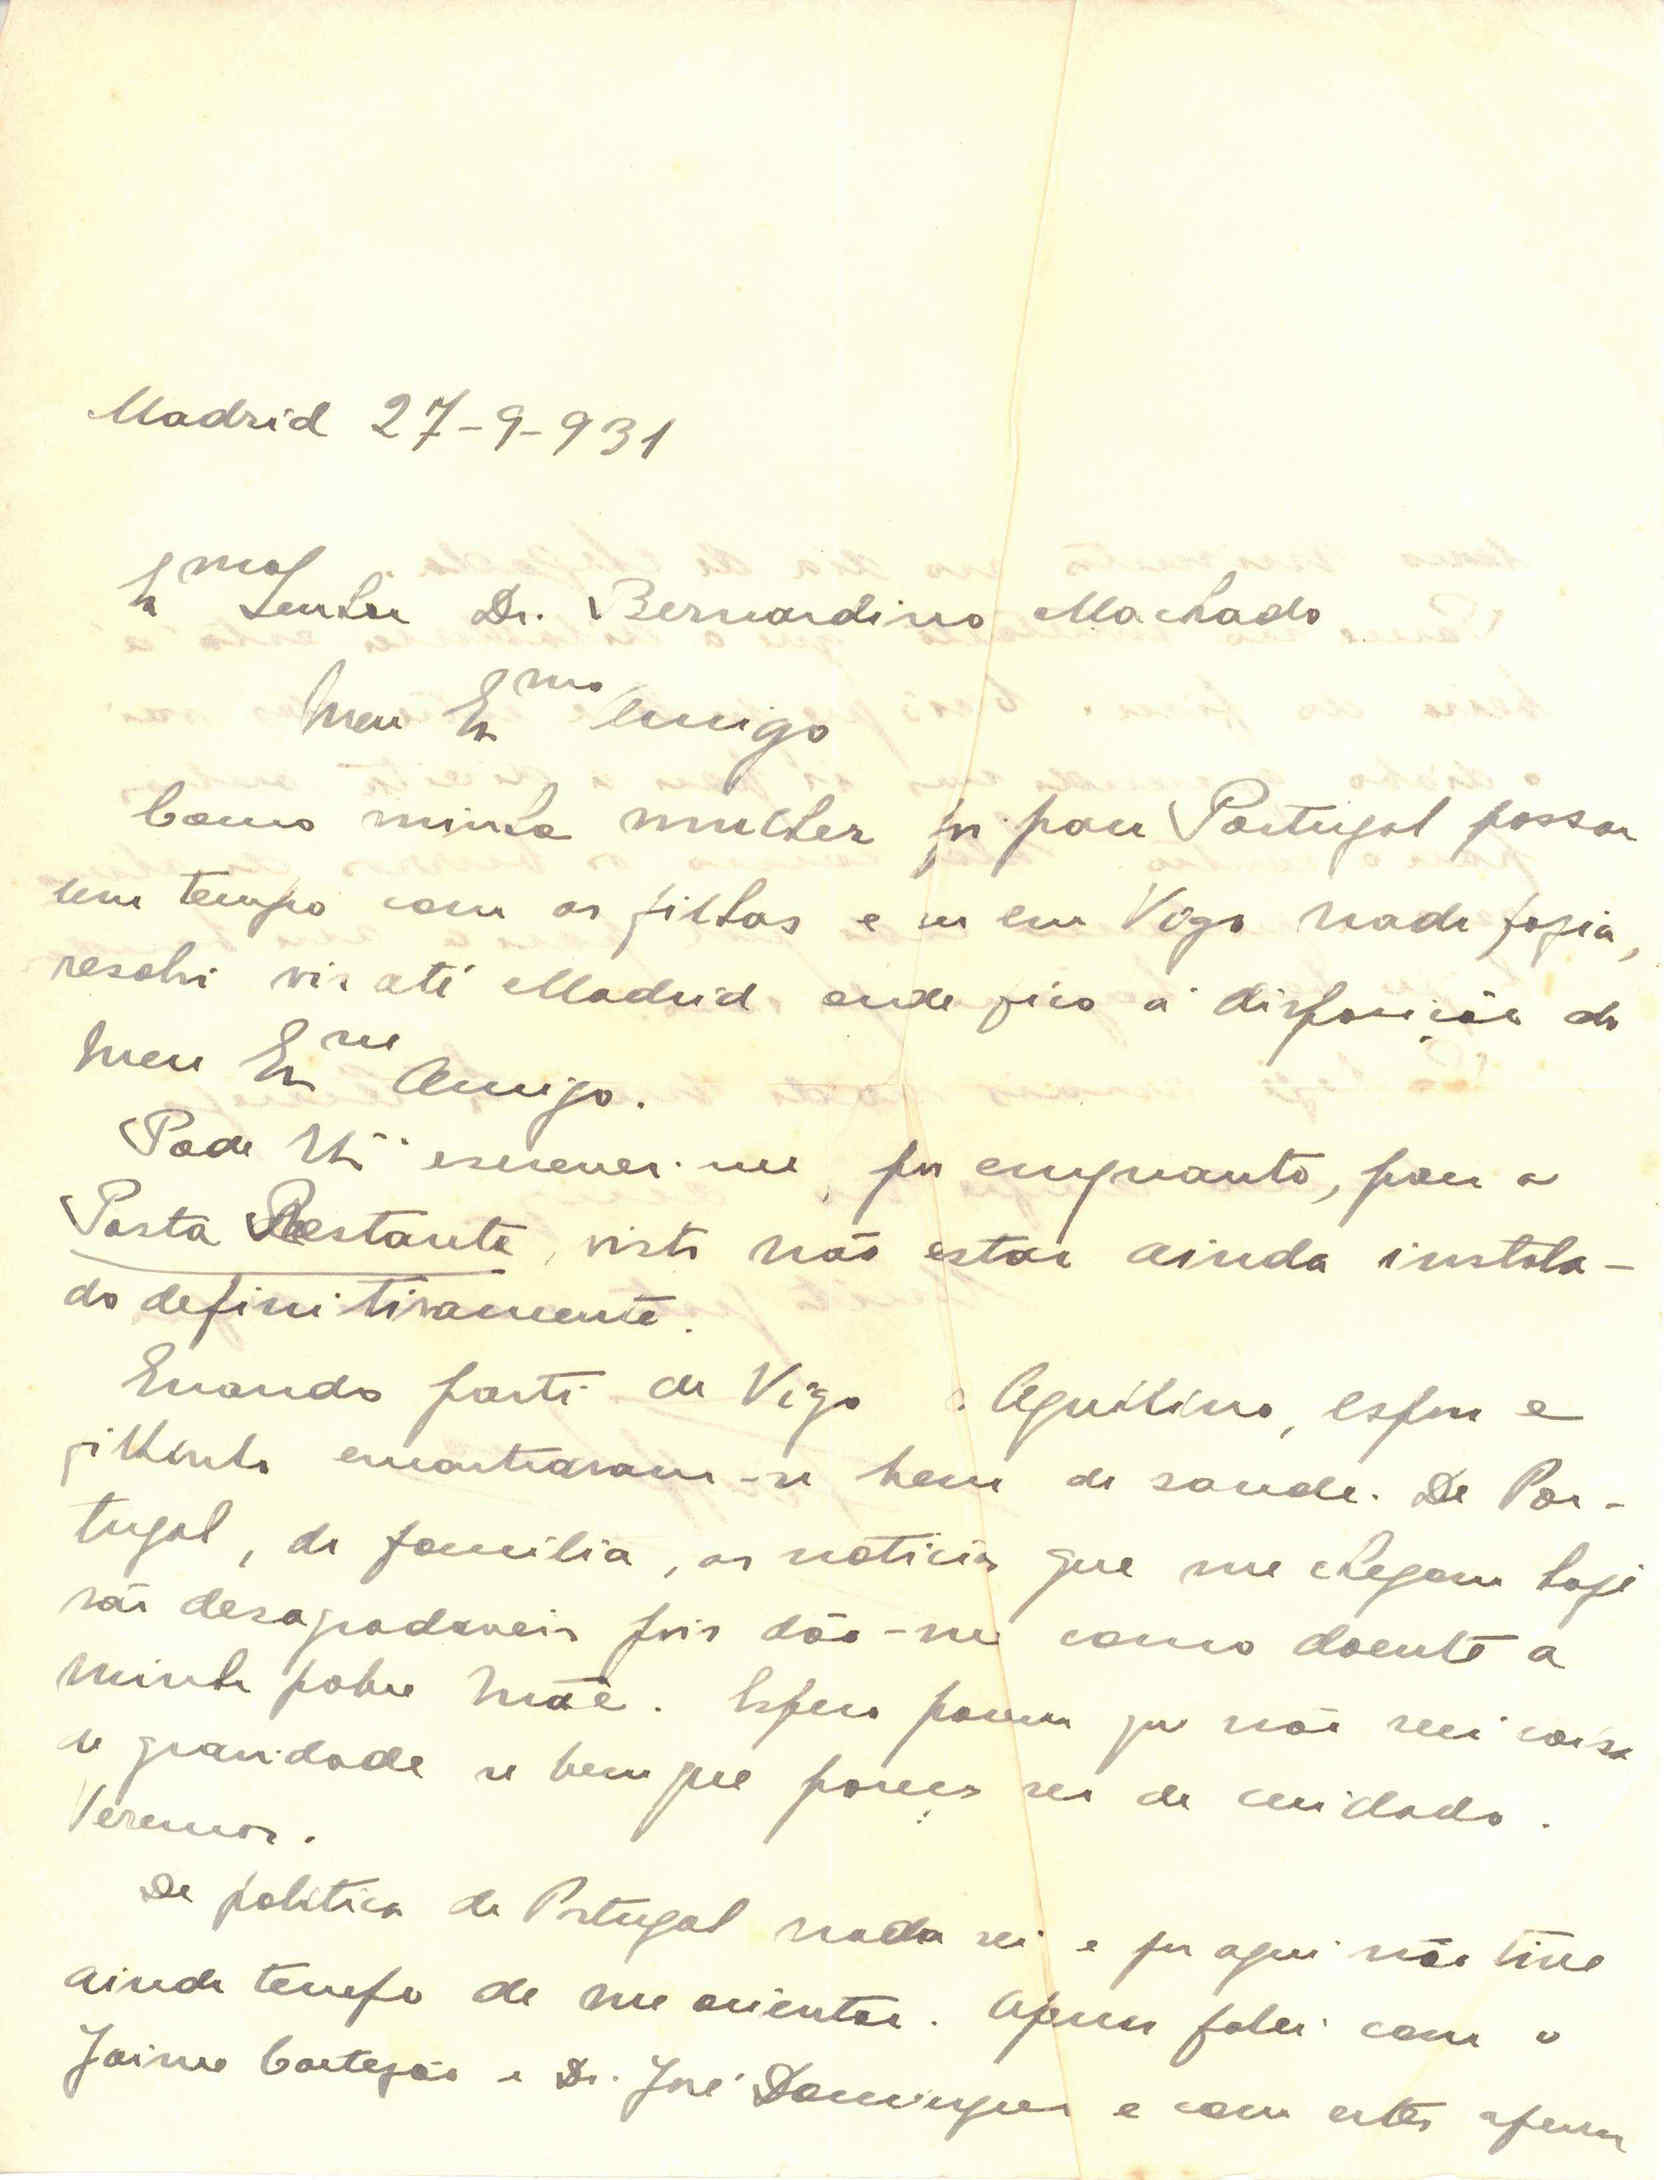 Madrid 27-9-931
Ex.mo Senhor Dr. Bernardino Machado
Meu Ex.mo Amigo
Como minha mulher foi para Portugal passar
um tempo com os filhos e eu em Vigo nada fazia,
resolvi vir até Madrid onde fico á disposição do
Meu Ex.mo Amigo.
Pode V. Ex.ª escrever-me, por emquanto, para a
Posta Restante, visto não estar ainda instala-
do definitivamente.
Quando parti de Vigo o Aquilino, esposa e
filhinho encontravam-se bem de saude. De Por-
tugal, de familia, as noticias que me chegam hoje
são desagradaveis pois dão-me como doente a
minha pobre Mãe. Espero porem que não seja coisa
de gravidade se bem que pareça ser de cuidado.
Veremos.
De politica de Portugal nada sei e por aqui não tive
ainda tempo de me orientar. Apenas falei com o
Jaime Cortezão e Dr. José Domingues e com estes apenas